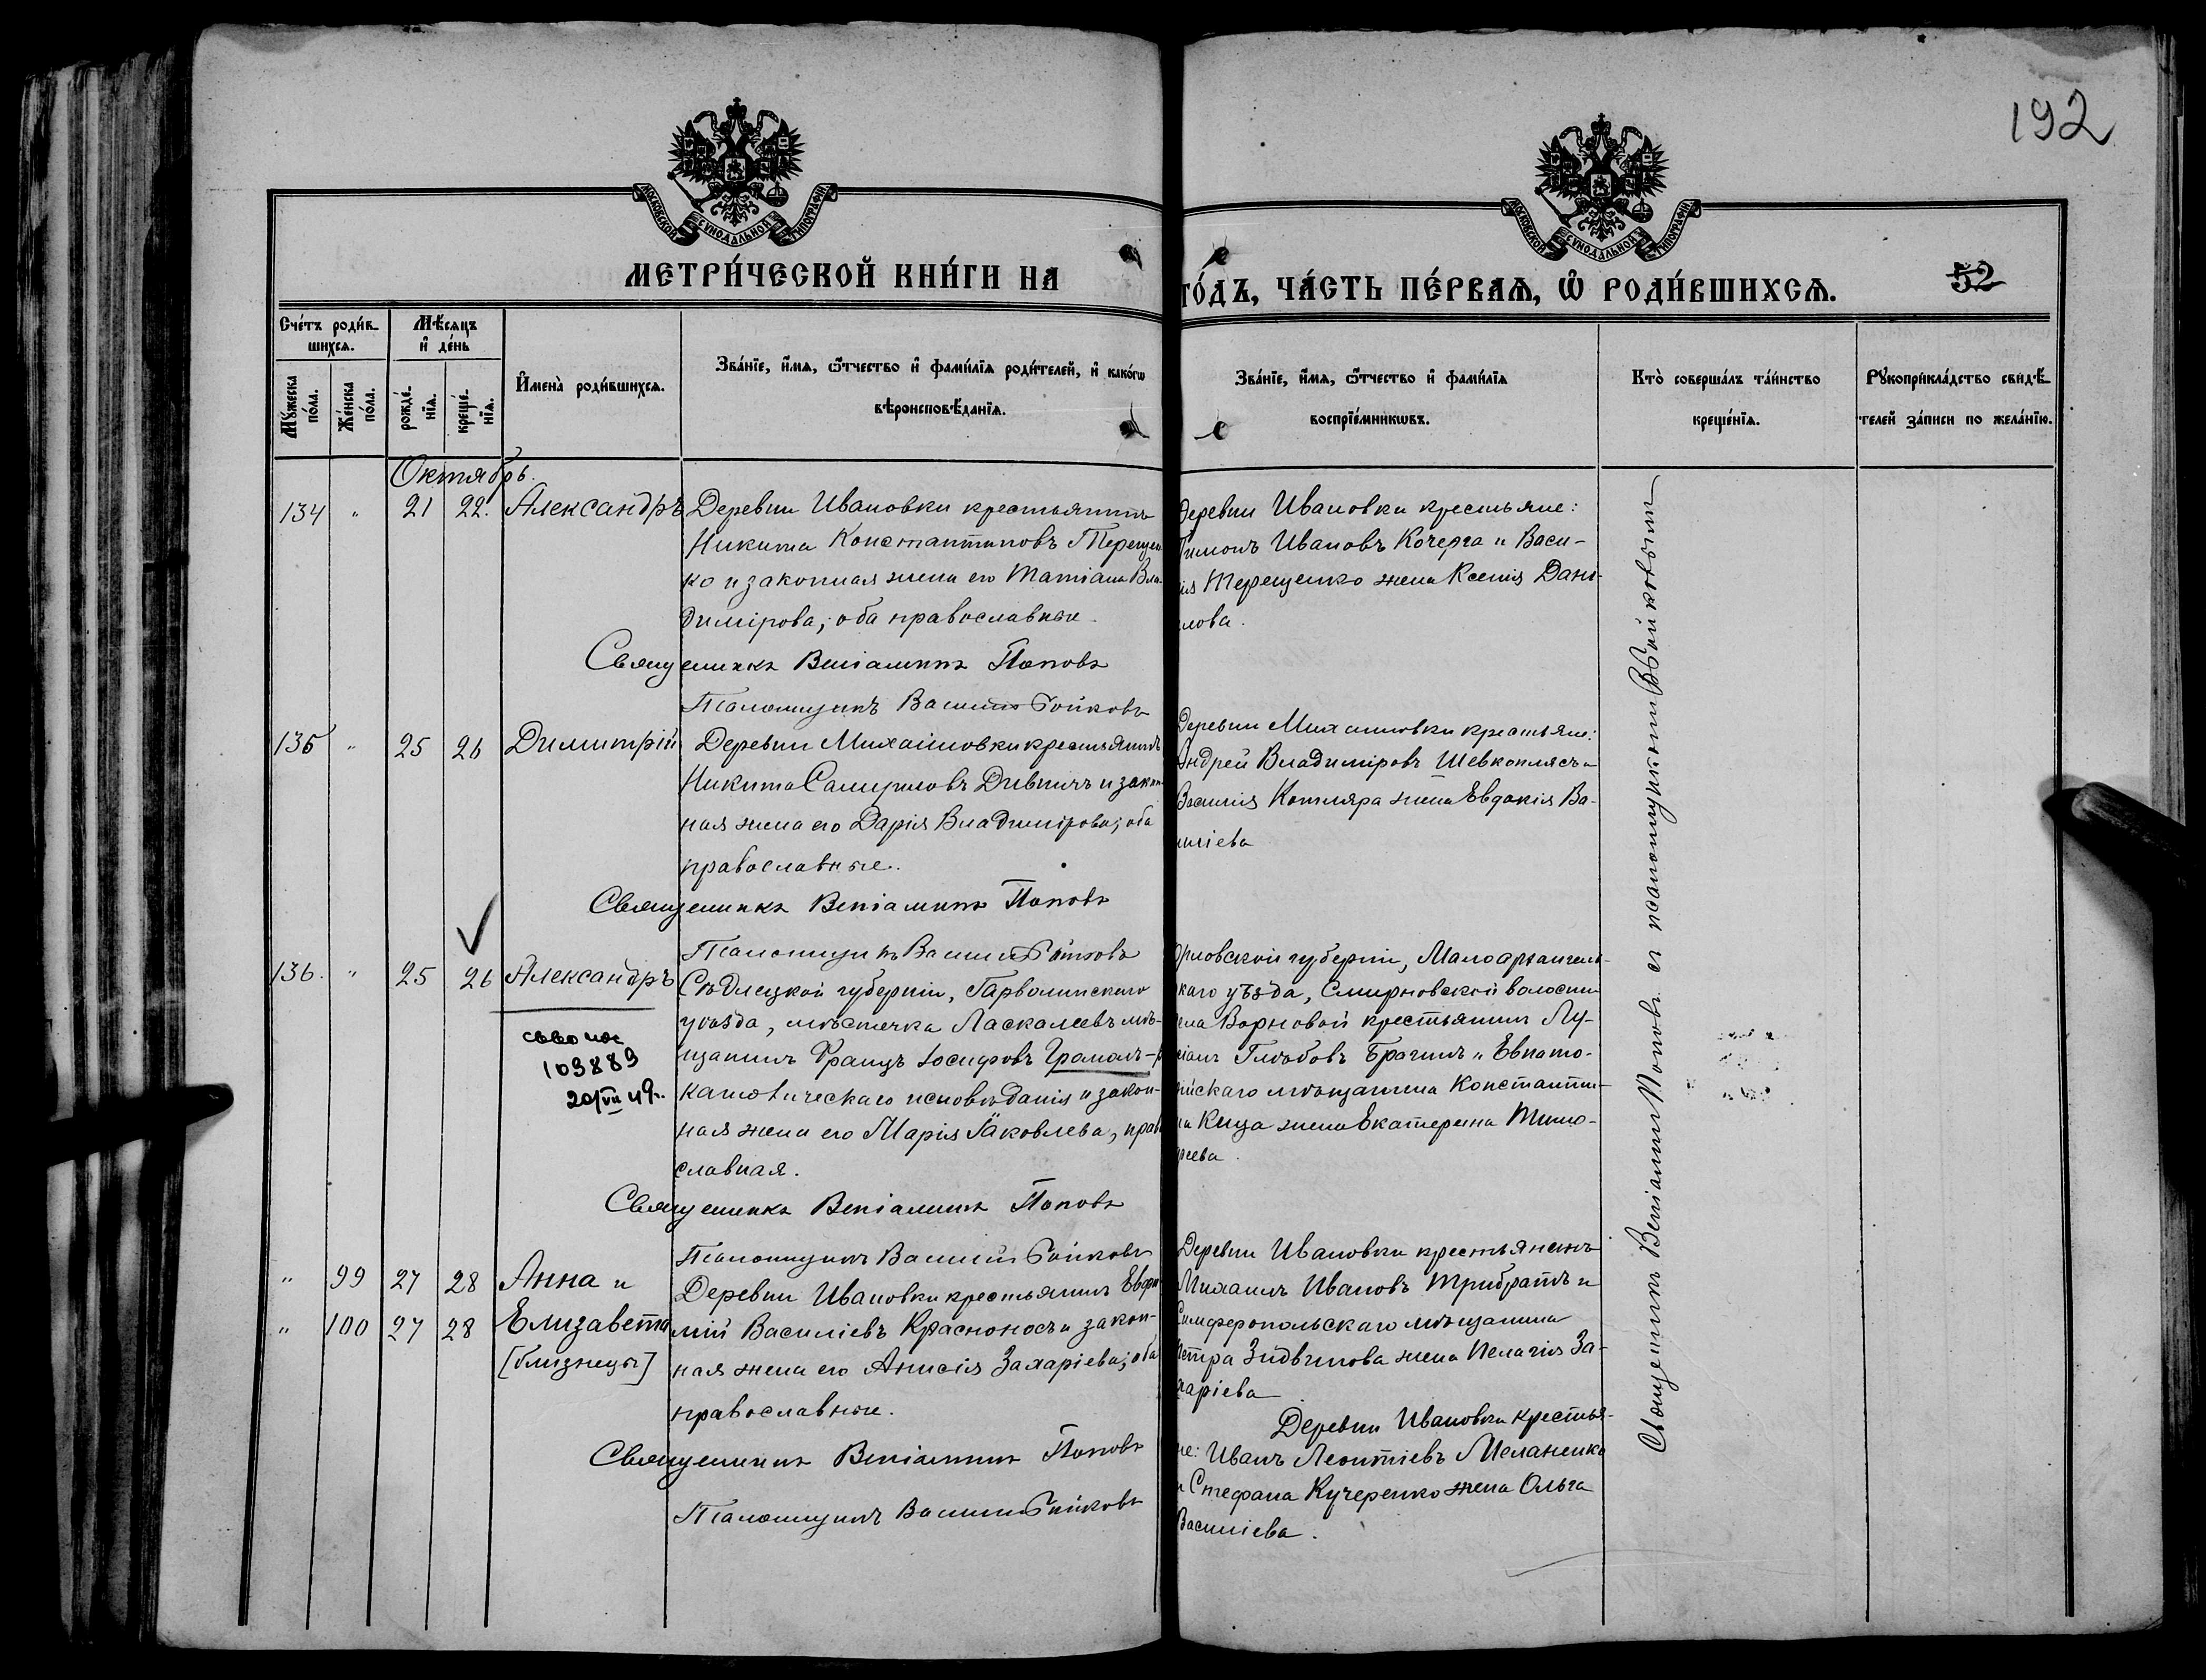 192
МОСКОВСКОЙ СѴНОДАЛЬНОЙ ТИПОГРАФІИ
МОСКОВСКОЙ СѴНОДАЛЬНОЙ ТИПОГРАФІИ
МЕТРИ́ЧЕСКОЙ КНИ́ГИ НА
ГО́ДЪ, ЧА́СТЬ ПЕ́РВАѦ, Ѽ РОДИ́ВШИХСѦ.
52
Сче́тъ роди́в-
шихсѧ.
Мѣ́сѧцъ
и҆ де́нь
Мꙋ́жеска
по́ла.
Же́нска
по́ла.
рожде́-
нїѧ.
креще́-
нїѧ.
И҆мена̀ роди́вшихсѧ.
Зва́нїе, и҆́мѧ, ѻ҆́тчество и҆ фами́лїѧ роди́телей, и҆ како́гѡ
вѣроисповѣ́данїѧ.
Зва́нїе, и҆́мѧ, ѻ҆́тчество и҆ фами́лїѧ
воспрїе́мникѡвъ.
Кто̀ соверша́лъ та́инство
креще́нїѧ.
Рꙋкоприкла́дство свидѣ́-
телей за́писи по жела́нїю.
Октябрь.
134 " 21 22. Александръ Деревни Ивановки крестьянинъ
Никита Константиновъ Терещен
ко и законная жена его Татіана Вла-
димірова; оба православные.
Священникъ Веніаминъ Поповъ
Псаломщикъ Василій Бойковъ
Деревни Ивановки крестьяне:
Тимонъ Ивановъ Кочерга и Васи-
лія Терещенко жена Ксенія Дани-
лова.
135 " 25 26 Димитрій Деревни Михайловки крестьянинъ
Никита Самуиловъ Дивничъ и закон-
ная жена его Дарія Владимірова; оба
православные.
Священникъ Веніаминъ Поповъ
Псаломщикъ Василій Бойковъ
Деревни Михайловки крестьяне:
Андрей Владиміровъ Шевкоплясъ и
Василія Котляра жена Евдокія Ва-
силіева
136. " 25 26 Александръ Сѣдлецкой губерніи, Гарволинскаго
уѣзда, мѣстечка Ласкалевъ мѣ-
щанинъ Францъ Іосифовъ Громолъ-р
католическаго исповѣданія и закон-
ная жена его Марія Іаковлева, право
славная.
Священникъ Веніаминъ Поповъ
Псаломщикъ Василій Бойковъ
109889
20/VII 49г.
Орловской губерніи, Малоархангель-
скаго уѣзда, Смирновской волости
села Ворновой крестьянинъ Лу-
кіанъ Глѣбовъ Брагинъ и Евпато-
рійскаго мѣщанина Константи-
на Кица жена Екатерина Тимо-
феева.
" 99 27 28 Анна и
" 100 27 28 Елизавета
[близнецы]
Деревни Ивановки крестьянинъ Евфи
мій Василіевъ Красноносъ и закон-
ная жена его Анисія Захаріева; оба
православные.
Священникъ Веніаминъ Поповъ
Псаломщикъ Василій Бойковъ
Деревни Ивановки крестьянинъ
Михаилъ Ивановъ Трибратъ и
Симферопольскаго мѣщанина
Петра жена Пелагія За-
харіева
Деревни Ивановки крестья-
не: Иванъ Леонтіевъ Меланенко
и Стефана Кучеренко жена Ольга
Василіева.
Священникъ Веніаминъ Поповъ съ псаломщикомъ Бойковымъ